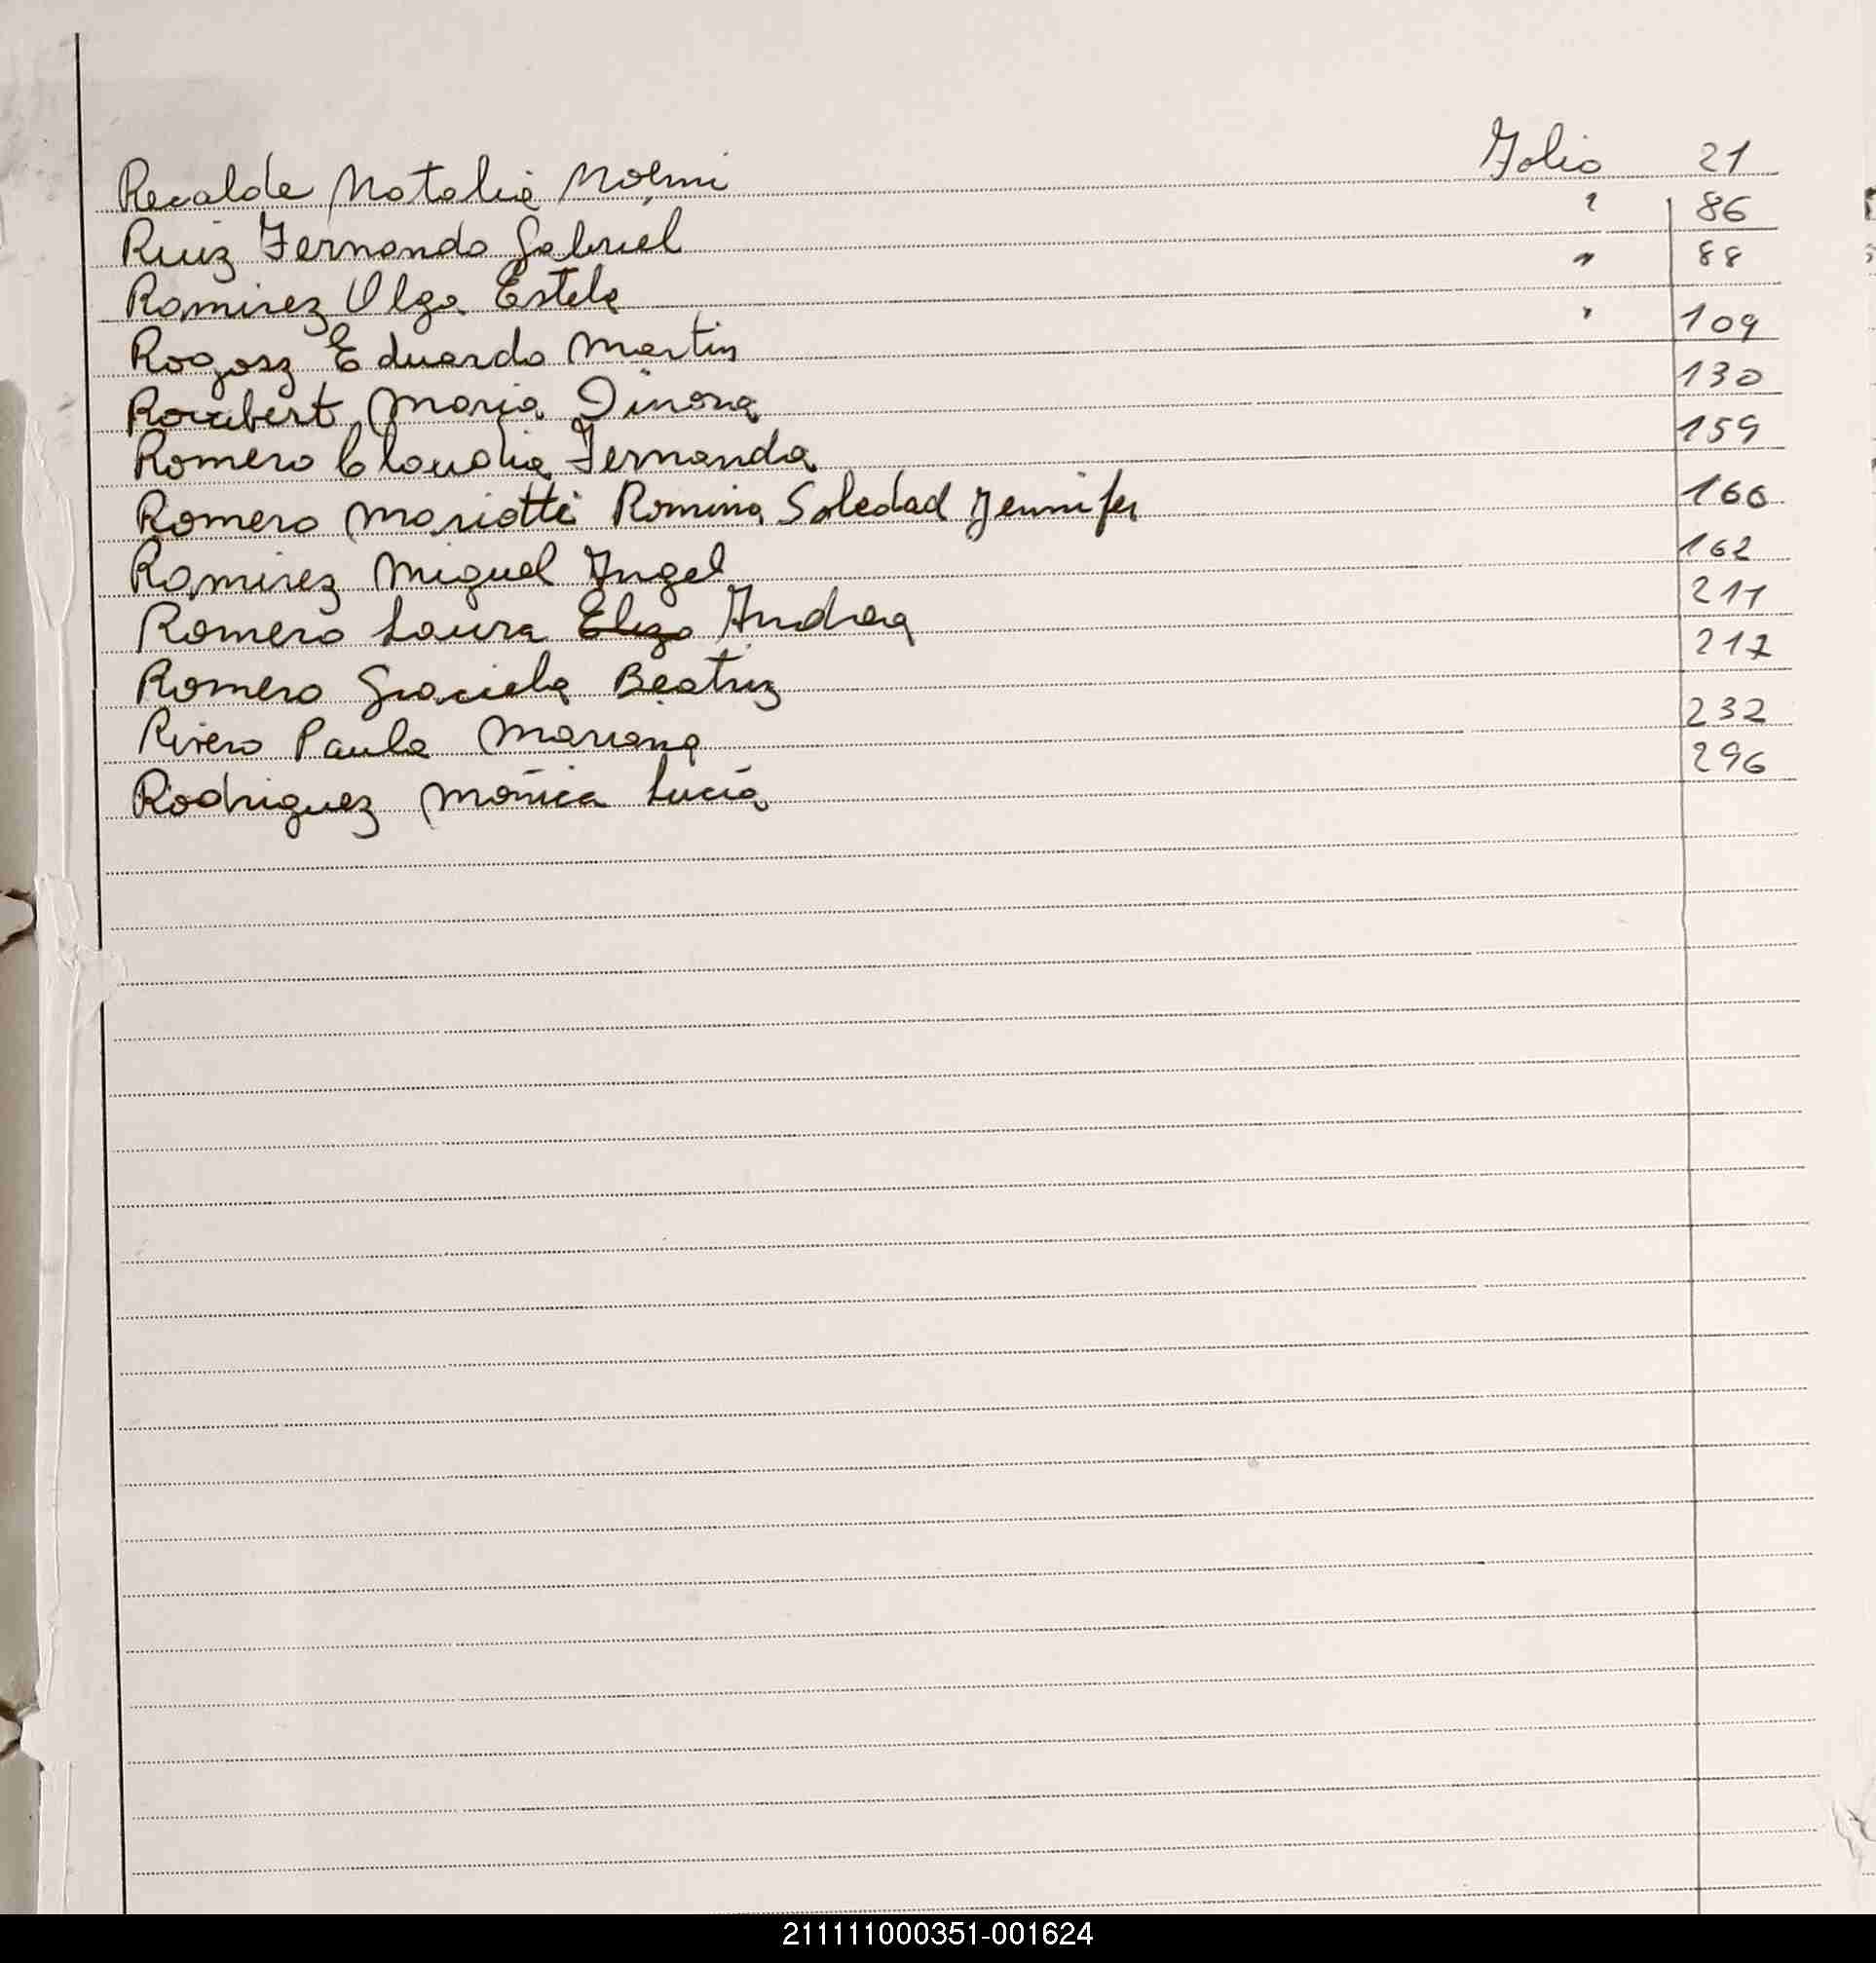 Recalde Natalia Noemi Folio 21
Ruiz Fernando Gabriel " 86
Ramirez Olga Estela " 88
Rogosz Eduardo Martin " 109
Maria 130
Romero Claudia Fernanda 159
Romero Mariotti Romina Soledad Jennifer 160
Ramirez Miguel Angel 162
Romero Laura Eliza Andrea 211
Romero Graciela Beatriz 217
Rivero Paula Mariana 232
Rodriguez Mónica Lucía 296
211111000351-001624